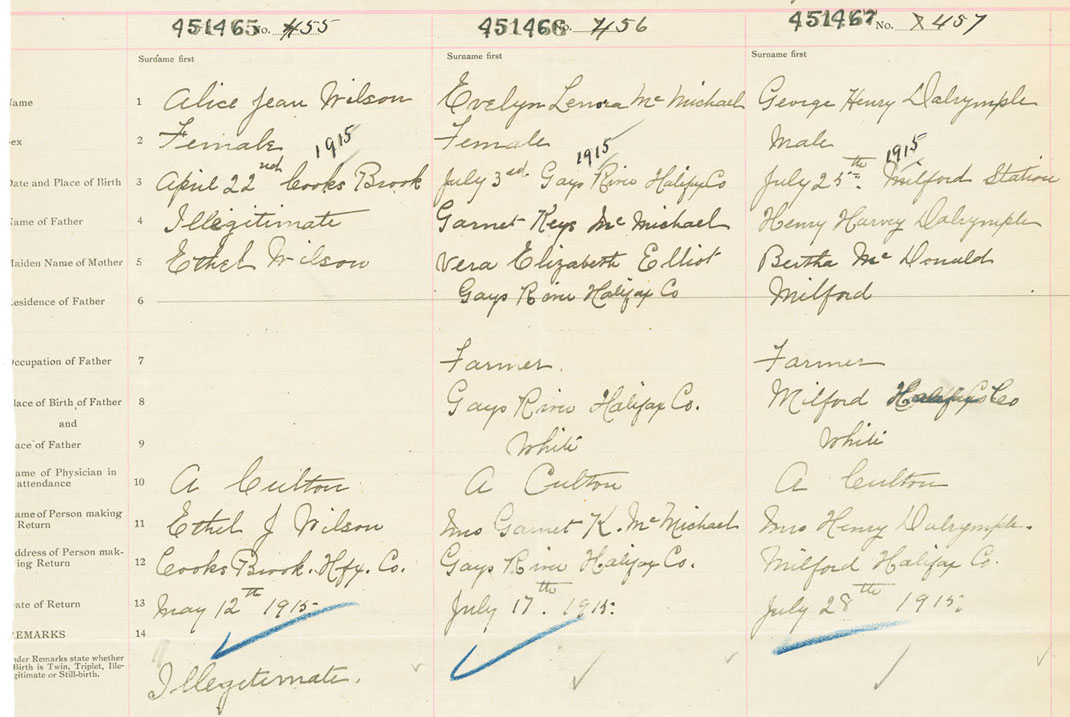 451465 No. 455 451466 No. 456 451467 No. 457
Surname first Surname first Surname first
ame 1 Alice Jean Wilson Evelyn Lenora Mc Michael George Henry Dalrymple
ex 2 Female Female Male
1915 1915 1915
Date and Place of Birth 3 April 22nd Cooks Brook July 3rd. Gays River Halifax Co July 25th. Milford Station
Name of Father 4 Illegitimate Garnet Keys Mc Michael Henry Harvey Dalrymple
Maiden Name of Mother 5 Ethel Wilson Vera Elizabeth Elliot Bertha Mc Donald
esidence of Father 6 Gays River Halifax Co Milford
Occupation of Father 7 Farmer. Farmer
lace of Birth of Father 8 Gays River Halifax Co. Milford Halifax Co
and
ace of Father 9 White White
ame of Physician in
attendance 10 A Cutton A Cutton A Cutton
ame of Person making
Return 11 Ethel J Wilson Mrs Garnet K. Mc Michael Mrs Henry Dalrymple.
ddress of Person mak-
ing Return 12 Cooks Brook. Hfx. Co. Gays River Halifax Co. Milford Halifax Co.
ate of Return 13 May 12th 1915 July 17th. 1915. July 28th 1915.
REMARKS 14
nder Remarks state whether
Birth is Twin, Triplet, Ille-
gitimate or Still-birth.
Illegitimate.